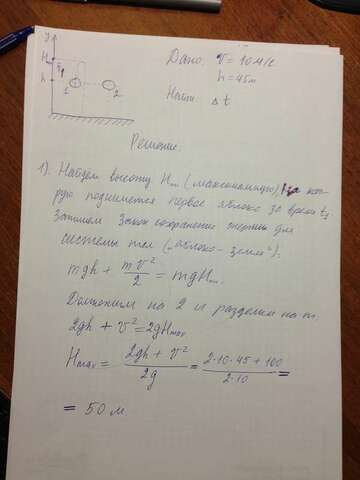 Дано: V = 10 м/с
h = 45 м
Найти Δt
y
Hm
h
1
2
Решение
1). Найдем высоту Hm (максимальную) на кото-
рую поднимется первое яблоко за время t1.
Запишем Закон сохранения энергии для
системы тел („яблоко - земля“):
mgh + mV²/2 = mgHm.
Домножим на 2 и разделим на m.
2gh + V² = 2gHmax
Hmax = (2gh + V²)/2g = (2·10·45 + 100)/2·10 =
= 50 м